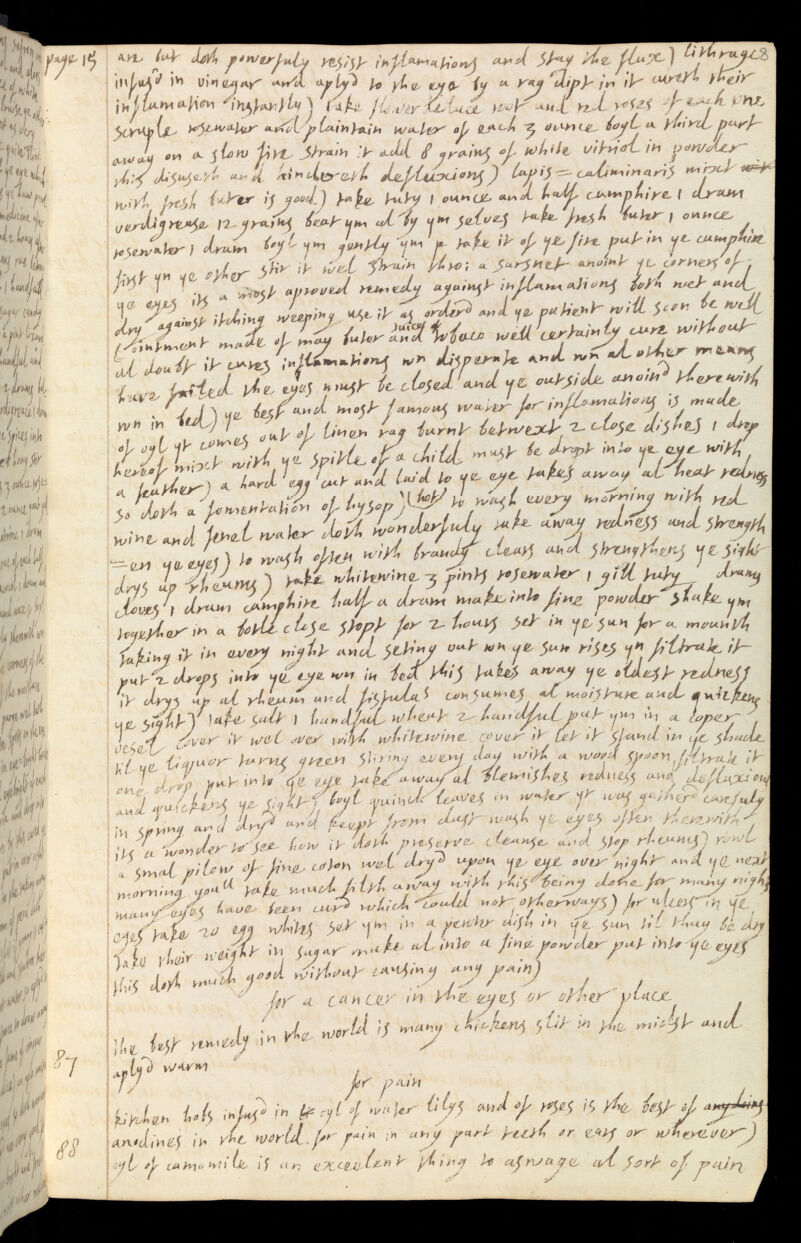 page 15
are but doth powerfuly resist inflamations and stay the flux) lithrage 8
infus'd in vinegar and aply'd to the eye by a rag dipt in it cureth their
inflamation instantly) take flower deluce root and red roses of each one
scruple rosewater and plaintain water of each 3 ounce boyl a third part
away on a slow fire strain it add 8 grains of white vitriol in powder
this disuseth and hindereth defluxions) lapis=caliminaris mixt with
with fresh buter is good) take tuty 1 ounce and half camphire 1 dram
verdigrease 12 grains beat ym al by ym selves take fresh buter 1 ounce
rosewater 1 dram boyl ym gently ym take it of ye fire put in ye camphire
first yn ye other stir it wel strain thro: a sarsnet anoint ye corners of
ye eyes its a most aproved remedy against inflamations both wet and
dry against itching weeping use it as order'd and ye patient will soon be well
(ointment made of may buter and juice of tobaco well certainly cure without
al doubt it cures inflamations wn disperate and wn al other means
have failed the eyes must be closed and ye outside anoint'd therewith
wn in bed) ye best and most famous water for inflamations is made
of oyl yt comes out of linen rag burnt betwext 2 close dishes 1 drop
hereof mixt with ye spitle of a child must be dropt into ye eye with
a feather) a hard egg cut and laid to ye eye takes away al heat redness
so doth a fomentation of hysop) (hot) to wash every morning with red
wine and fenel water doth wonderfuly take away redness and strength
=en ye eyes) to wash often with brandy clears and strengthens ye sight
drys up rheums) take whitewine 3 pints rosewater 1 gill tuty drams
cloves 1 dram camphire half a dram make into fine powder shake ym
together in a botle close stopt for 2 hours set in ye sun for a mounth
taking it in every night and seting out wn ye sun rises yn filtrate it
put 2 drops into ye eye wn in bed this takes away ye oldest redness
it drys up al rheum and fistulas consumes al moisture and quickens
ye sight) take salt 1 handful wheat 2 handful put ym in a coper
vesel cover it wel over with whitewine cover it let it stand in ye shade
til ye liquor turns green stiring every day with a wood spoon filtrate it
one drop put into ye eye take away al blemishes redness and defluxions
and quickens ye sight) boyl quinch leaves in water yt was gather'd carefuly
in spring and dry'd and keept from dust wash ye eyes often therewith
its a wonder to see how it doth preserve cleanse and stop rheums) rowl
a smal pilow of fine coton wel dry'd upon ye eye over night and ye next
morning youll take much filth away with this being done for many nights
many eyes have been cur'd which could not otherways) for ulcers in ye
eyes take 20 egg whites set ym in a pewter dish in ye sun til thay be dry
take their weight in sugar make al into a fine powder put into ye eyes
this doth much good without causing any pain)
for a cancer in the eyes or other place
the best remedy in the world is many chickens slit in the midst and
87
aply'd warm
for pain
kitchen hobs infus'd in oyl of water lilys and of roses is the best of
88
anodines in the world for pain in any part teeth or ears or wherever)
oyl of camomile is an exceelent thing to aswage al sort of pain